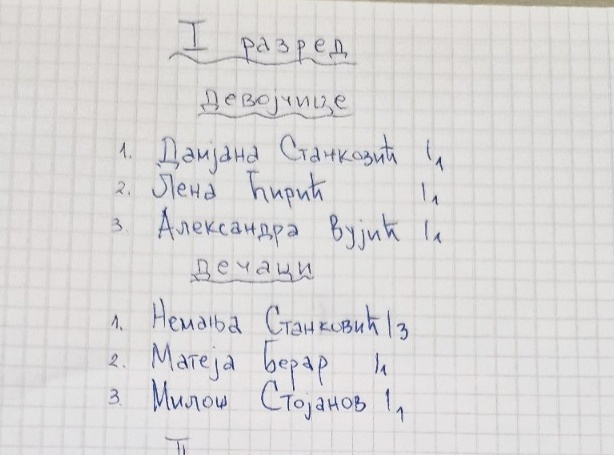 I разред
девојчице
1. Дамјана Станковић I1
2. Лена Ћирић I1
3. Александра Вујић I1
дечаци
1. Немања Станковић I3
2. Матеја Берар I1
3. Милош Стојанов I1